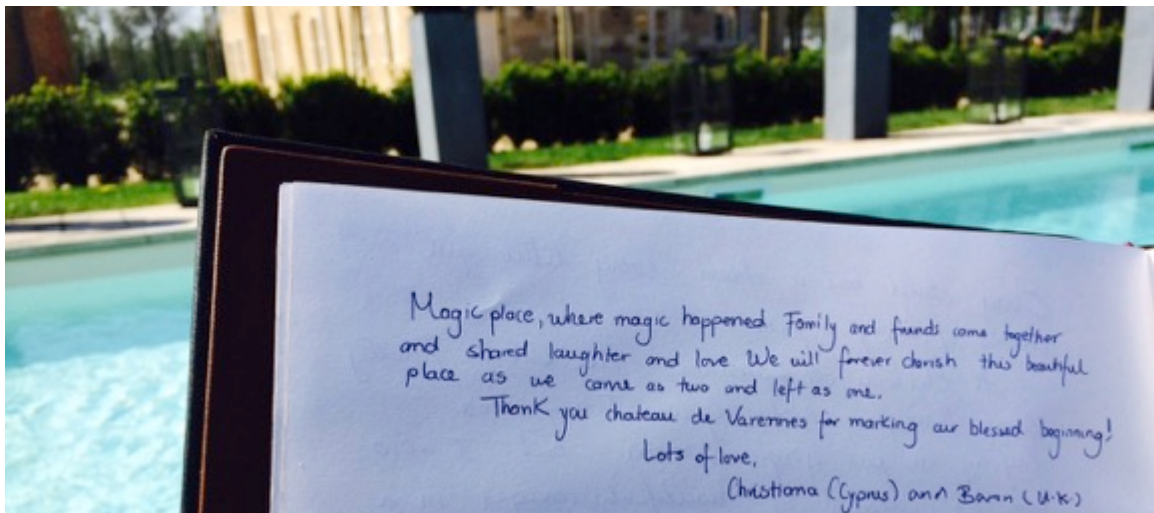 Magic place, where magic happened Family and friends came together
and shared laughter and love We will forever cherish this beautiful
place as we came as two and left as one.
Thank you chateau de Varennes for marking our blessed beginning!
Lots of love,
Christiana (Cyprus) and (U.K.)